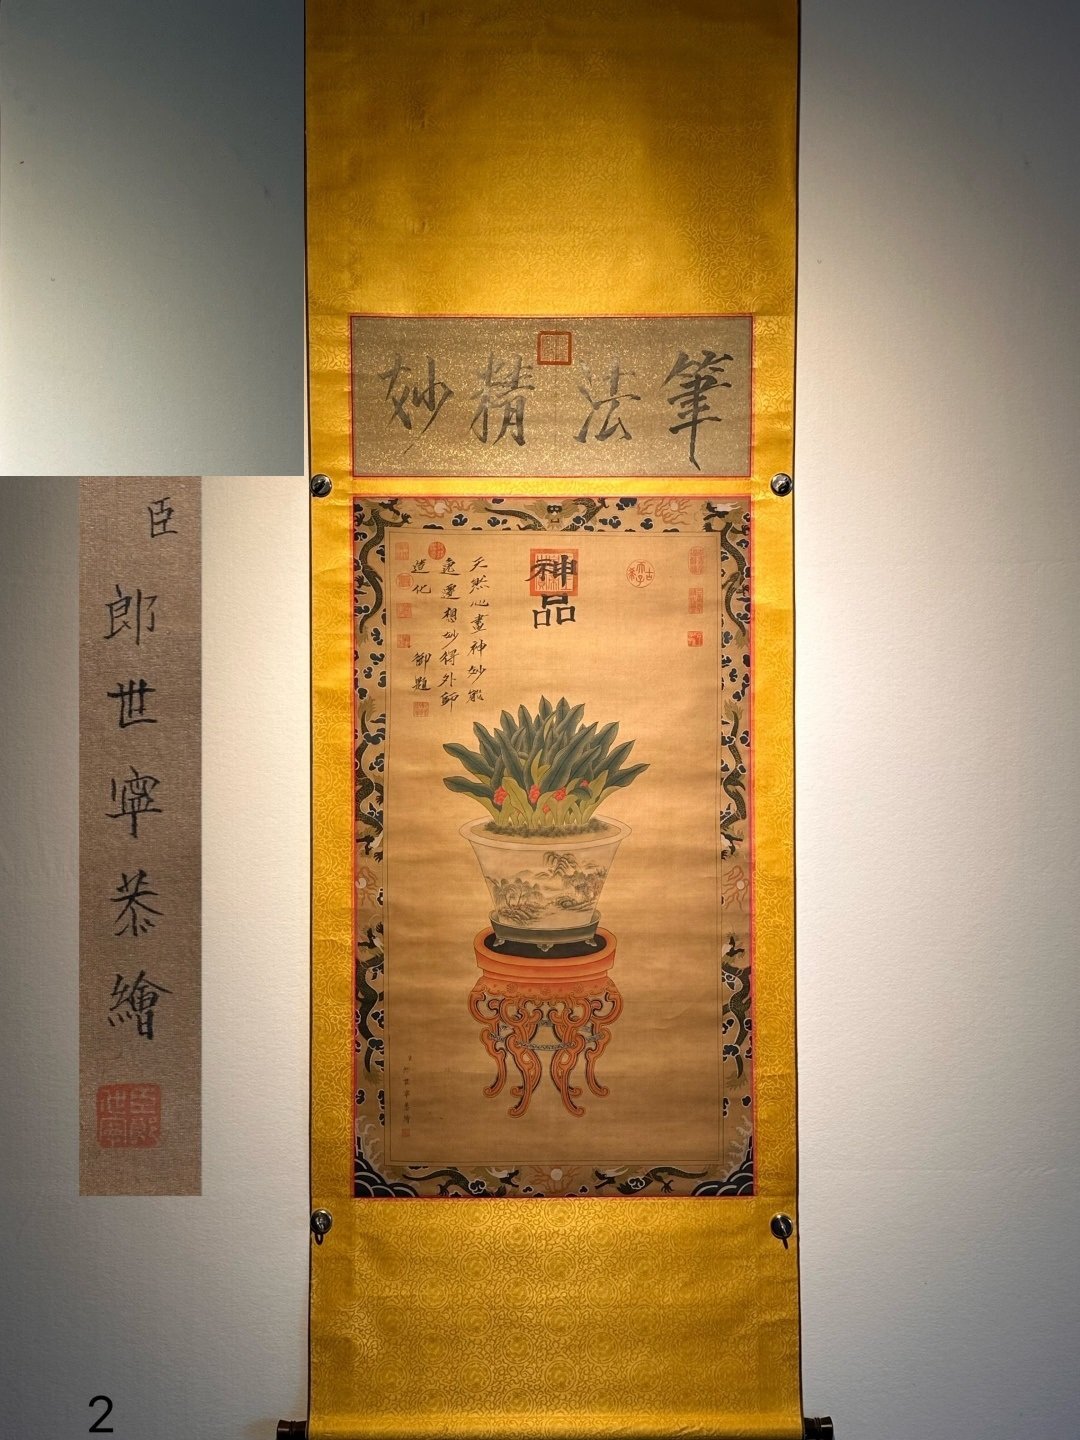 筆法精妙
神品
天然心畫神妙能
逸遷想妙得外師
造化
御題
臣
郎世寧恭繪
臣郎世寧恭繪
2